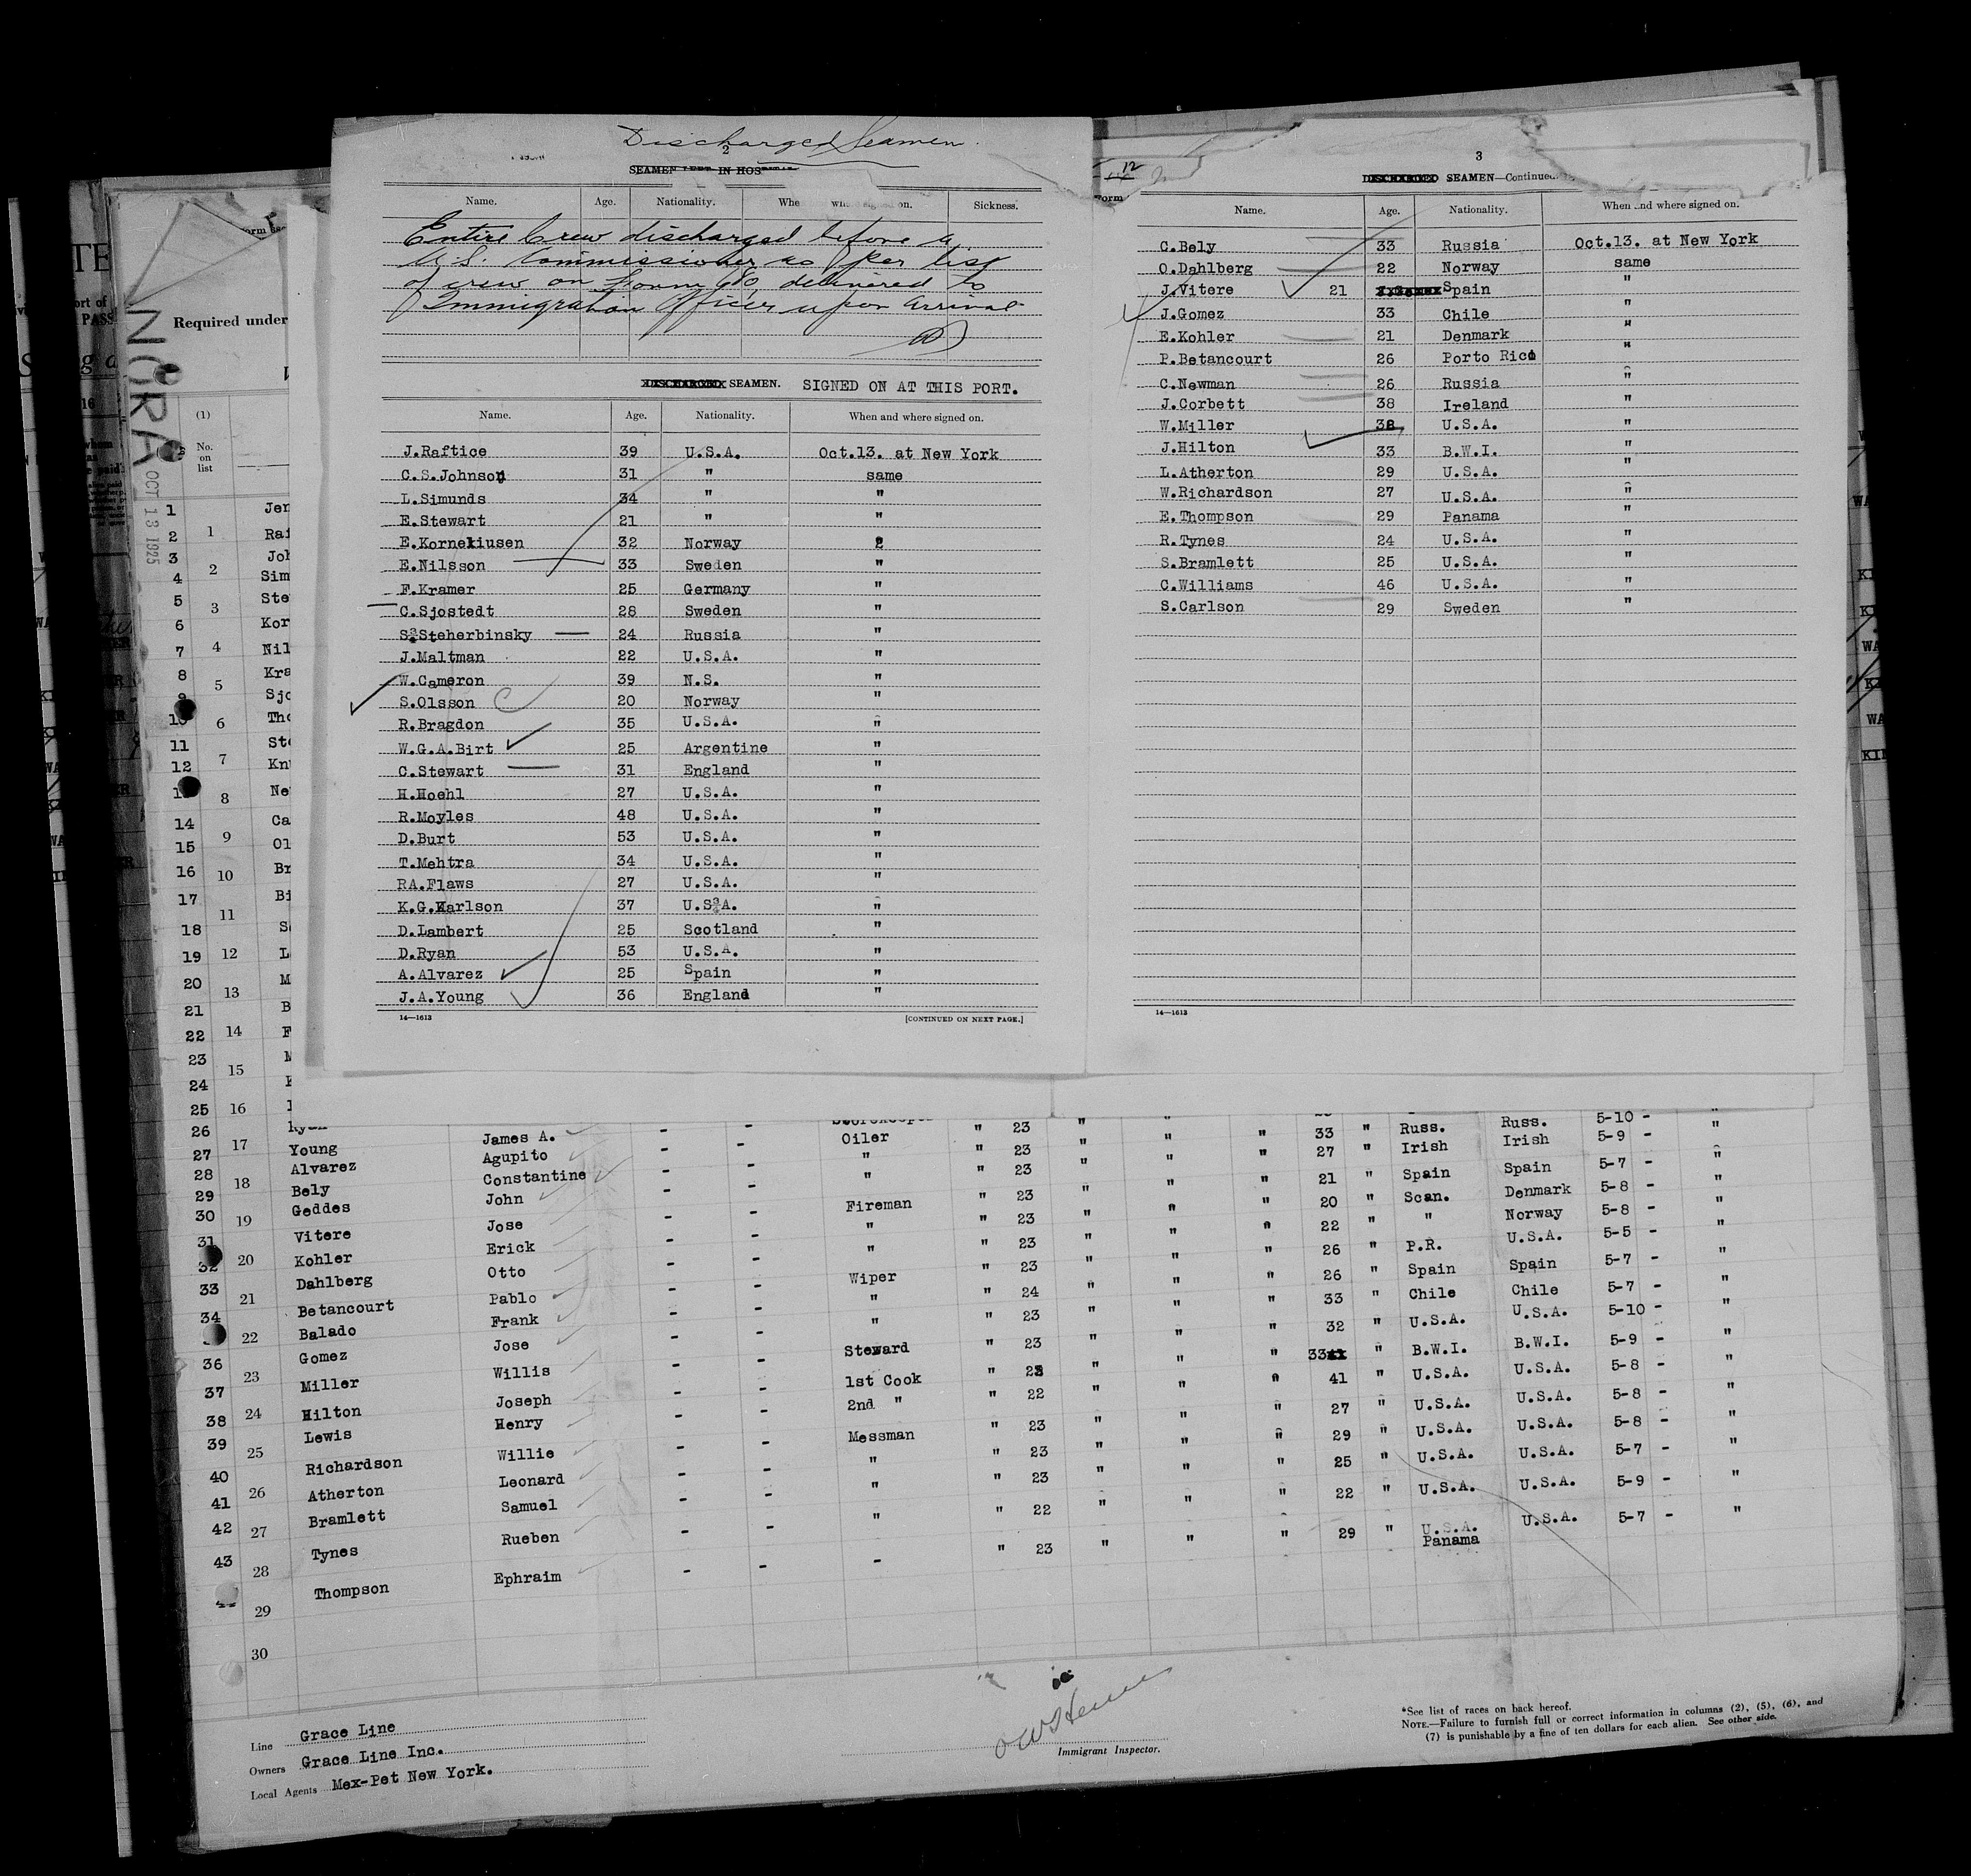 Discharged Seamen
2
SEAMEN LEFT IN HOS
Name. Age. Nationality. Whe where signed on. Sickness.
Entire Crew discharged before a
U.S. Commissioner as per list
of crew on Form 680 delivered to
Immigration Officer upon arrival
DISCHARGED SEAMEN. SIGNED ON AT THIS PORT.
Name. Age. Nationality. When and where signed on.
J.Raftice 39 U.S.A. Oct.13. at New York
C.S.Johnson 31 " same
L.Simunds 34 " "
E.Stewart 21 " "
E.Korneliusen 32 Norway
E.Nilsson 33 Sweden "
F.Kramer 25 Germany "
C.Sjostedt 28 Sweden "
S.Steherbinsky 24 Russia "
J.Maltman 22 U.S.A. "
W.Cameron 39 N.S. "
S.Olsson 20 Norway "
R.Bragdon 35 U.S.A. "
W.G.A.Birt 25 Argentine "
C.Stewart 31 England "
H.Hoehl 27 U.S.A. "
R.Moyles 48 U.S.A. "
D.Burt 53 U.S.A. "
T.Mehtra 34 U.S.A. "
RA.Flaws 27 U.S.A. "
K.G.Karlson 37 U.S.A. "
D.Lambert 25 Scotland "
D.Ryan 53 U.S.A. "
A.Alvarez 25 Spain "
J.A.Young 36 England "
14—1613 [CONTINUED ON NEXT PAGE.]
12
orm
3
DISCHARGED SEAMEN—Continued.
Name. Age. Nationality. When and where signed on.
C.Bely 33 Russia Oct.13. at New York
O.Dahlberg 22 Norway same
J.Vitere 21 Spain "
J.Gomez 33 Chile "
E.Kohler 21 Denmark "
P.Betancourt 26 Porto Rico "
C.Newman 26 Russia "
J.Corbett 38 Ireland "
W.Miller 38 U.S.A. "
J.Hilton 33 B.W.I. "
L.Atherton 29 U.S.A. "
W.Richardson 27 U.S.A. "
E.Thompson 29 Panama "
R.Tynes 24 U.S.A. "
S.Bramlett 25 U.S.A. "
C.Williams 46 U.S.A. "
S.Carlson 29 Sweden "
14—1613
NORA
OCT 13 1925
Required under
(1)
No. on list
1 Jen
2 1 Rai
3 Joh
4 2 Sim
5 3 Ste
6 Kor
7 4 Nil
8 Kra
9 5 Sjo
10 6 Tho
11 Ste
12 7 Knu
8 Ne
14 Ca
15 9 Ol
16 10 Br
17 Bi
11
18 S
19 12 L
20 M
13
21 B
22 14 F
23 M
15
24
25 16
26 Ryan
27 17 Young James A. - - Oiler " 23 " " " 33 " Russ. Russ. 5-10 - "
28 Alvarez Agupito - - " " 23 " " " 27 " Irish Irish 5-9 - "
29 18 Bely Constantine - - " " 23 " " " 21 " Spain Spain 5-7 - "
30 19 Geddes John - - Fireman " 23 " " " 20 " Scan. Denmark 5-8 - "
31 Vitere Jose - - " " 23 " " " 22 " " Norway 5-8 - "
32 20 Kohler Erick - - " " 23 " " " 26 " P.R. U.S.A. 5-5 - "
33 21 Dahlberg Otto - - Wiper " 23 " " " 26 " Spain Spain 5-7 - "
34 Betancourt Pablo - - " " 24 " " " 33 " Chile Chile 5-7 - "
22 Balado Frank - - " " 23 " " " 32 " U.S.A. U.S.A. 5-10 - "
36 Gomez Jose - - Steward " 23 " " " 33 " B.W.I. B.W.I. 5-9 - "
37 23 Miller Willis - - 1st Cook " 23 " " " 41 " U.S.A. U.S.A. 5-8 - "
38 24 Hilton Joseph - - 2nd " " 22 " " " 27 " U.S.A. U.S.A. 5-8 - "
39 25 Lewis Henry - - Messman " 23 " " " 29 " U.S.A. U.S.A. 5-8 - "
40 Richardson Willie - - " " 23 " " " 25 " U.S.A. U.S.A. 5-7 - "
41 26 Atherton Leonard - - " " 23 " " " 22 " U.S.A. U.S.A. 5-9 - "
42 27 Bramlett Samuel - - " " 22 " " " 29 " U.S.A. Panama U.S.A. 5-7 - "
43 28 Tynes Rueben - - - " 23 " "
29 Thompson Ephraim - -
30
Line Grace Line
Owners Grace Line Inc.
Local Agents Mex-Pet New York.
Immigrant Inspector.
*See list of races on back hereof.
NOTE.—Failure to furnish full or correct information in columns (2), (5), (6), and
(7) is punishable by a fine of ten dollars for each alien. See other side.